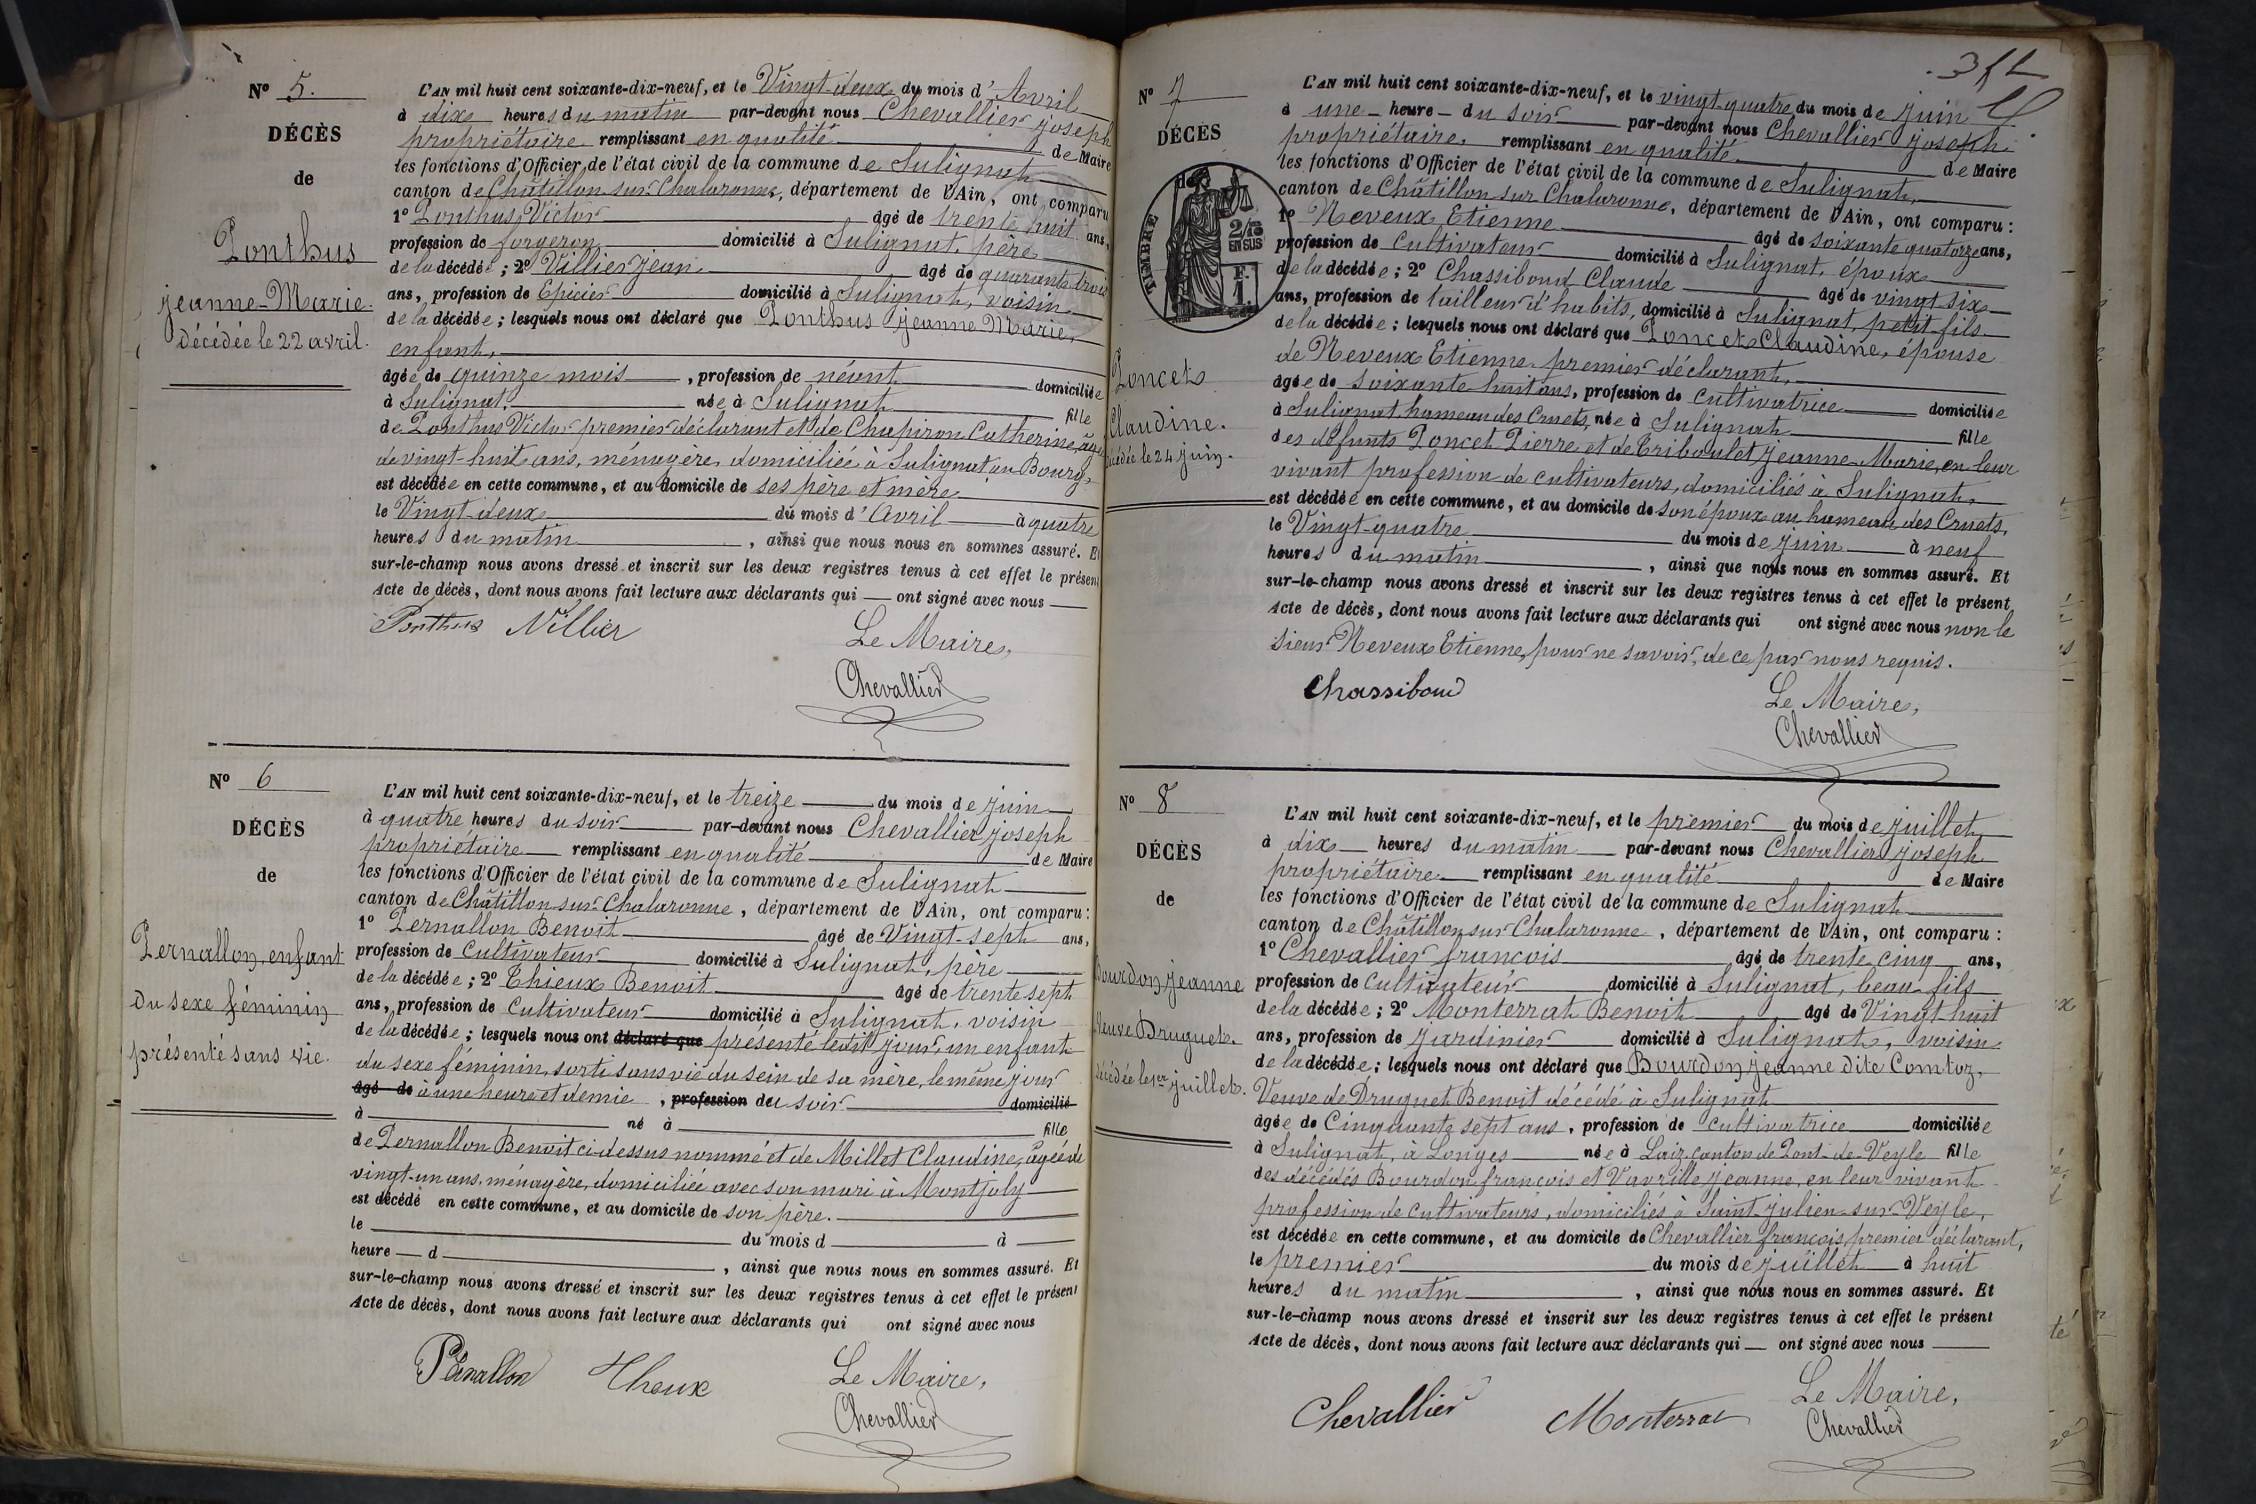 Nº 5.
DÉCÈS
de
Ponthus
jeanne-Marie.
décédée le 22 avril.
L'AN mil huit cent soixante-dix-neuf, et le Vingt-deux du mois d'Avril
à dix heures du matin par-devant nous Chevallier joseph
propriétaire remplissant en qualité de Maire
les fonctions d'Officier de l'état civil de la commune de Sulignat
canton de Châtillon sur Chalaronne, département de l'Ain, ont comparu
1º Ponthus Victor âgé de trente huit ans,
profession de forgeron domicilié à Sulignat, père
de la décédée ; 2º Villier Jean âgé de quarante trois
ans, profession de Epicier domicilié à Sulignat, voisin
de la décédée ; lesquels nous ont déclaré que Ponthus jeanne Marie,
enfant,
âgée de quinze mois, profession de néant domiciliée
à Sulignat, née à Sulignat fille
de Ponthus Victor premier déclarant et de Chapiron Catherine, âgée
de vingt-huit ans, ménagère, domiciliée à Sulignat au Bourg,
est décédée en cette commune, et au domicile de ses père et mère
le Vingt-deux du mois d'Avril à quatre
heures du matin, ainsi que nous nous en sommes assuré. Et
sur-le-champ nous avons dressé et inscrit sur les deux registres tenus à cet effet le présent
Acte de décès, dont nous avons fait lecture aux déclarants qui — ont signé avec nous
Ponthus Villier Le Maire,
Chevallier
Nº 6
DÉCÈS
de
Pernallon, enfant
du sexe féminin
présenté sans vie.
L'AN mil huit cent soixante-dix-neuf, et le treize du mois de juin
à quatre heures du soir par-devant nous Chevallier joseph
propriétaire remplissant en qualité de Maire
les fonctions d'Officier de l'état civil de la commune de Sulignat
canton de Châtillon sur Chalaronne, département de l'Ain, ont comparu :
1º Pernallon Benoit âgé de Vingt-sept ans,
profession de Cultivateur domicilié à Sulignat, père
de la décédée ; 2º Thieux Benoit âgé de trente sept
ans, profession de Cultivateur domicilié à Sulignat, voisin
de la décédée ; lesquels nous ont déclaré que présenté ledit jour, un enfant
du sexe féminin, sorti sans vie du sein de sa mère, le même jour
âgé de à une heure et demie, profession du soir domicilié
à né à fille
de Pernallon Benoit ci-dessus nommé et de Millet Claudine, âgée de
vingt-un ans, ménagère, domiciliée avec son mari à Montjoly
est décédé en cette commune, et au domicile de son père.
le du mois d à
heure — d , ainsi que nous nous en sommes assuré. Et
sur-le-champ nous avons dressé et inscrit sur les deux registres tenus à cet effet le présent
Acte de décès, dont nous avons fait lecture aux déclarants qui ont signé avec nous
Pernallon Thieux Le Maire,
Chevallier
Nº 7
DÉCÈS
de
TIMBRE
2/10
EN SUS
F.
1.
Poncet
Claudine.
décédée le 24 juin.
L'AN mil huit cent soixante-dix-neuf, et le vingt-quatre du mois de juin
à une heure du soir par-devant nous Chevallier joseph
propriétaire, remplissant en qualité de Maire
les fonctions d'Officier de l'état civil de la commune de Sulignat,
canton de Châtillon sur Chalaronne, département de l'Ain, ont comparu :
1º Neveux Etienne âgé de soixante quatorze ans,
profession de Cultivateur domicilié à Sulignat, époux
de la décédée ; 2º Chassiboud Claude âgé de vingt six
ans, profession de tailleur d'habits, domicilié à Sulignat, petit-fils
de la décédée ; lesquels nous ont déclaré que Poncet Claudine, épouse
de Neveux Etienne premier déclarant,
âgée de soixante huit ans, profession de Cultivatrice domiciliée
à Sulignat hameau des Cruets, née à Sulignat fille
des défunts Poncet Pierre et de Triboulet jeanne-Marie, en leur
vivant profession de cultivateurs, domiciliés à Sulignat,
est décédée en cette commune, et au domicile de son époux au hameau des Cruets,
le Vingt-quatre du mois de juin à neuf
heures du matin, ainsi que nous nous en sommes assuré. Et
sur-le-champ nous avons dressé et inscrit sur les deux registres tenus à cet effet le présent
Acte de décès, dont nous avons fait lecture aux déclarants qui ont signé avec nous non le
sieur Neveux Etienne, pour ne savoir, de ce par nous requis.
Chassiboud Le Maire,
Chevallier
Nº 8
DÉCÈS
de
Bourdon jeanne
Veuve Druguet.
décédée le 1er juillet.
L'AN mil huit cent soixante-dix-neuf, et le premier du mois de juillet
à dix heures du matin par-devant nous Chevallier joseph
propriétaire remplissant en qualité de Maire
les fonctions d'Officier de l'état civil de la commune de Sulignat
canton de Châtillon sur Chalaronne, département de l'Ain, ont comparu :
1º Chevallier françois âgé de trente cinq ans,
profession de Cultivateur domicilié à Sulignat, beau-fils
de la décédée ; 2º Monterrat Benoit âgé de Vingt huit
ans, profession de Jardinier domicilié à Sulignat, voisin
de la décédée ; lesquels nous ont déclaré que Bourdon jeanne dite Comtoz,
Veuve de Druguet Benoit décédé à Sulignat
âgée de Cinquante sept ans, profession de Cultivatrice domiciliée
à Sulignat, à Longes née à Laiz, canton de Pont-de-Veyle fille
des décédés Bourdon françois et Vavrille jeanne, en leur vivant
profession de cultivateurs, domiciliés à Saint julien-sur-Veyle,
est décédée en cette commune, et au domicile de Chevallier françois, premier déclarant,
le premier du mois de juillet à huit
heures du matin, ainsi que nous nous en sommes assuré. Et
sur-le-champ nous avons dressé et inscrit sur les deux registres tenus à cet effet le présent
Acte de décès, dont nous avons fait lecture aux déclarants qui — ont signé avec nous
Chevallier Monterrat Le Maire,
Chevallier